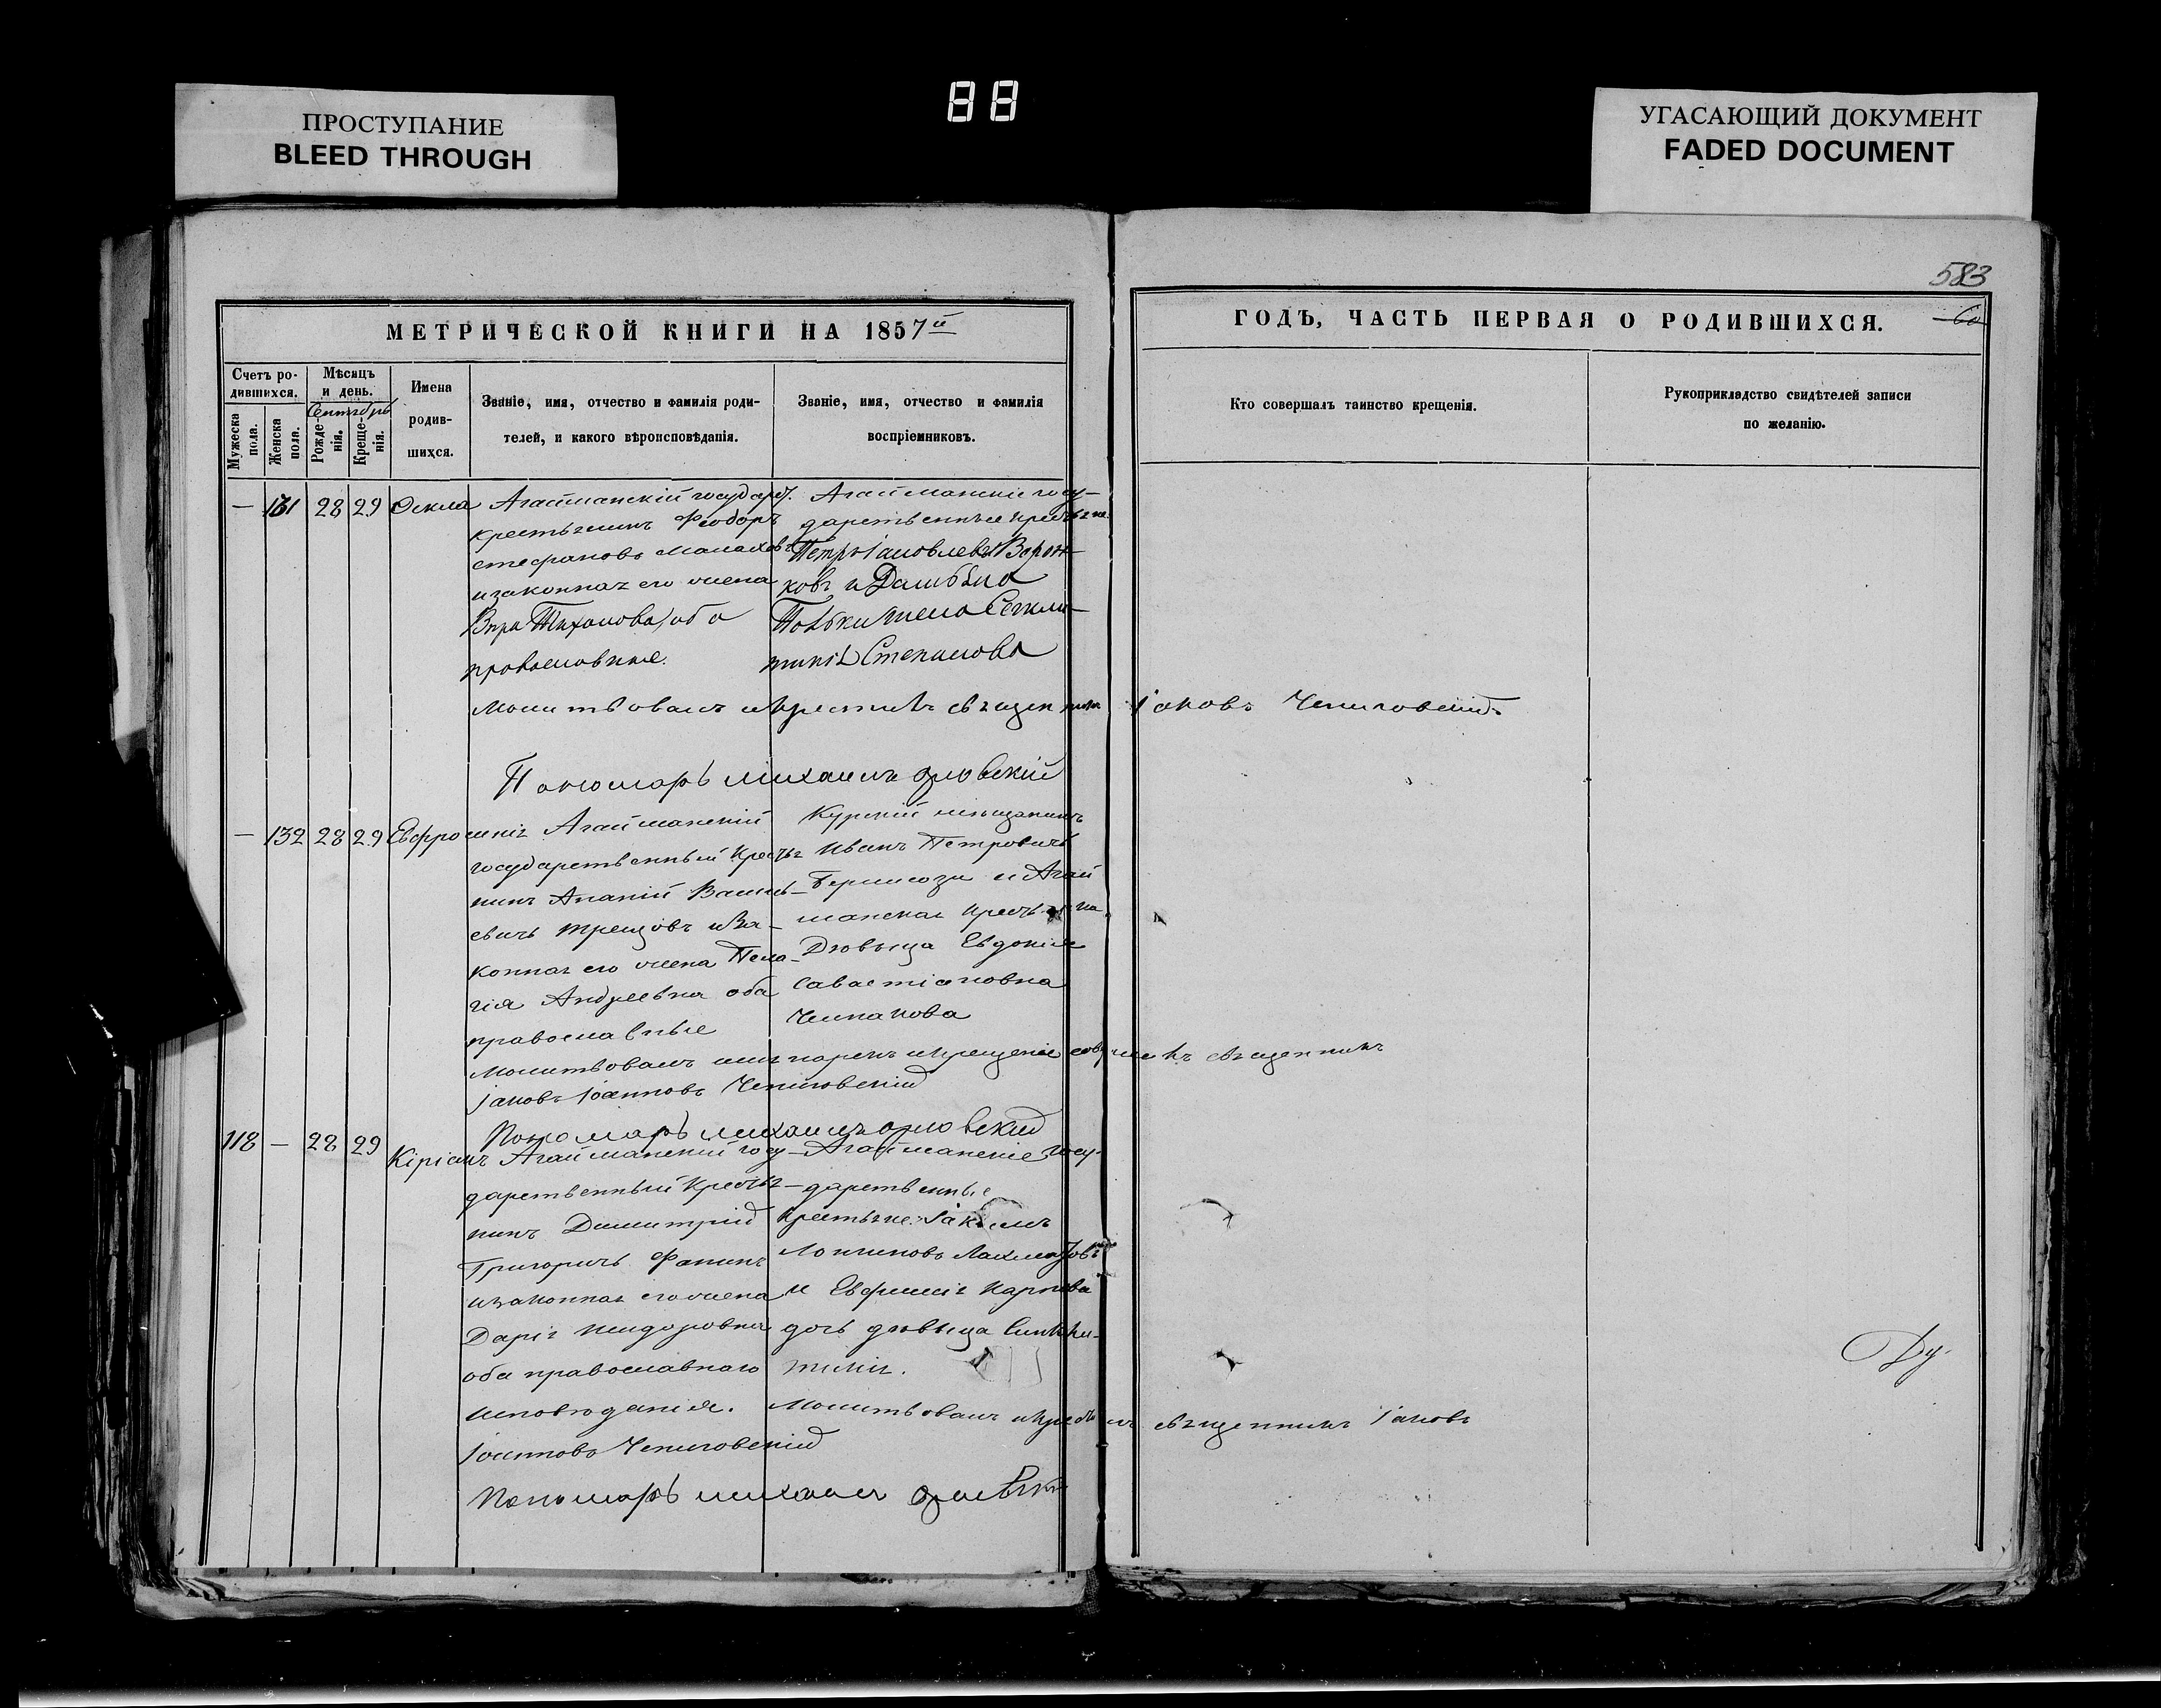 ПРОСТУПАНИЕ
BLEED THROUGH
88
УГАСАЮЩИЙ ДОКУМЕНТ
FADED DOCUMENT
583
МЕТРИЧЕСКОЙ КНИГИ НА 1857й
ГОДЪ, ЧАСТЬ ПЕРВАЯ О РОДИВШИХСЯ.
Счетъ ро-
дившихся.
Мужеска пола.
Женска пола.
Мѣсяцъ
и день.
Сентябрь
Рожде-
нія.
Креще-
нія.
Имена
родив-
шихся.
Званіе, имя, отчество и фамилія роди-
телей, и какого вѣроисповѣданія.
Званіе, имя, отчество и фамилія
воспріемниковъ.
Кто совершалъ таинство крещенія.
Рукоприкладство свидѣтелей записи
по желанію.
— 131 28 29 Ѳекла
Агайманскій государ.
крестьянинъ Феодоръ
стефановъ Малаховъ
и законная его жена
Вѣра Тихонова, оба
православные.
Агайманскіе госу-
дарственные крестьяне
Петръ Іаковлевъ Ворон-
ковъ и
жена
Степанова
Молитвовалъ и крестилъ священникъ Іаковъ Чепиговскій
Пономарь Михаилъ Орловскій
— 132 28 29 Евфросинія
Агайманскій
государственный крестья
нинъ Ананій Василь-
евичъ и за-
конная его жена Пела-
гія Андреевна оба
православные
Курскій мѣщанинъ
Иванъ Петровичъ
и Агай
манская крестьянка
Дѣвица Евдокія
Савастіановна
Чепакова
Молитвовалъ имя нарекъ и крещеніе совершилъ священникъ
Іаковъ Іоанновъ Чепиговскій
Пономарь Михаилъ Орловскій
118 — 28 29 Кіріанъ
Агайманскій госу-
дарственный крестья-
нинъ Димитрій
Григоричъ Фанинъ
и законная его жена
Дарія Исидоровна
оба православнаго
исповѣданія.
Агайманскіе госу-
дарственные
крестьяне: Іакимъ
и Евфимія Карпова
дочь дѣвица
Молитвовалъ и крестилъ священникъ Іаковъ
Іоанновъ Чепиговскій
Пономарь Михаилъ Орловскій